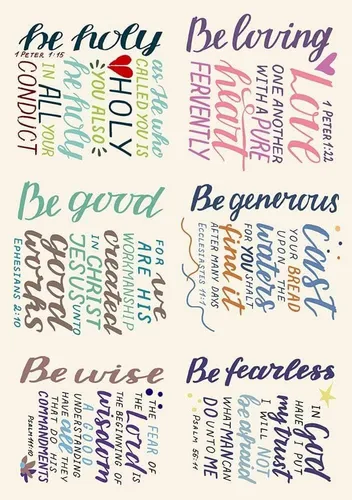 be holy
1 PETER 1:15
as He who
CALLED YOU IS
HOLY
YOU ALSO
be holy
IN ALL YOUR
CONDUCT
Be loving
1 PETER 1:22
Love
ONE ANOTHER
WITH A PURE
heart
FERVENTLY
Be good
FOR we
ARE HIS
WORKMANSHIP
created
IN CHRIST
JESUS UNTO
good
works
EPHESIANS 2:10
Be generous
Cast
YOUR BREAD
UPON THE
waters
FOR YOU SHALT
find it
AFTER MANY DAYS
ECCLESIASTES 11:1
Be wise
THE FEAR OF
the Lord is
THE BEGINNING OF
wisdom
A GOOD
UNDERSTANDING
HAVE all THEY
THAT DO HIS
COMMANDMENTS
PSALM 111:10
Be fearless
IN God
HAVE I PUT
my trust
I WILL NOT
be afraid
WHAT MAN CAN
DO UNTO ME
PSALM 56:11